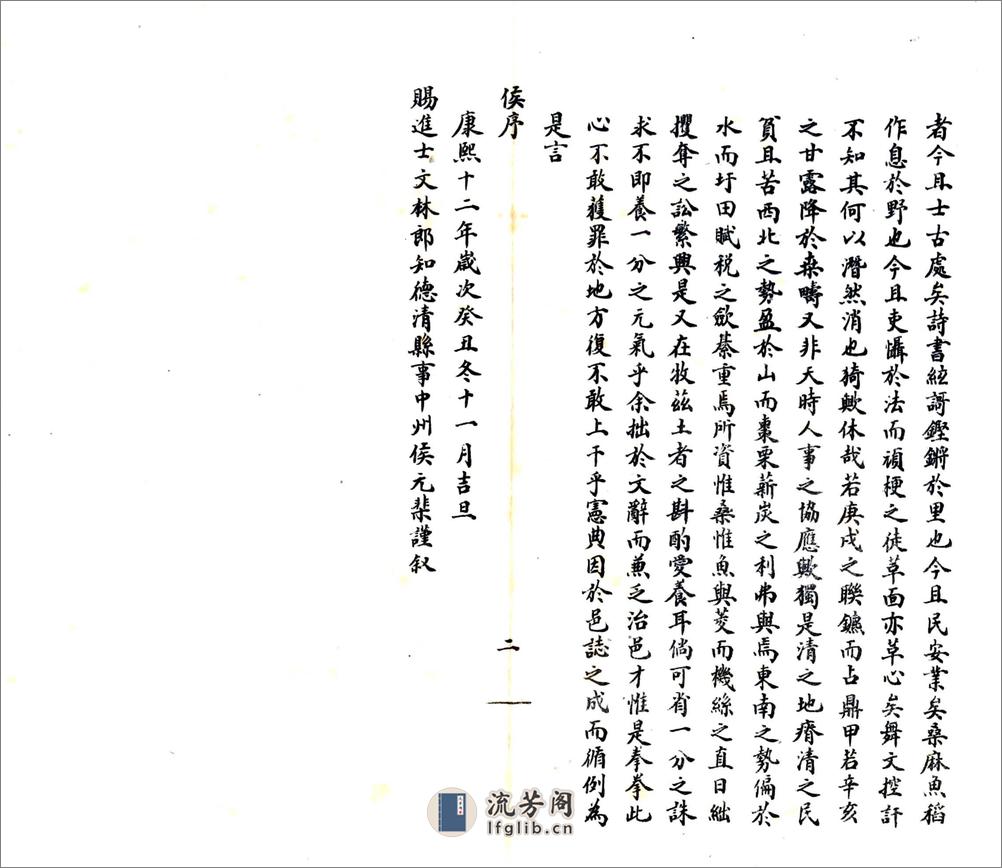 者今且士古處矣詩書絃謌鏗鏘於里也今且民安業矣桑麻魚稻
作息於野也今且吏懾於法而頑梗之徒革面亦革心矣舞文控訐
不知其何以潛然消也猗歟休哉若庚戌之聯鑣而占鼎甲若辛亥
之甘露降於桒疇又非天時人事之協應歟獨是清之地瘠清之民
貧且苦西北之勢盈於山而棗栗薪炭之利弗與焉東南之勢偏於
水而圩田賦税之歛綦重焉所資惟桑惟魚與菱而機絲之直日絀
攫奪之訟繁興是又在牧兹土者之斟酌愛養耳倘可省一分之誅
求不即養一分之元氣乎余拙於文辭而兼乏治邑才惟是拳拳此
心不敢獲罪於地方復不敢上干乎憲典因於邑誌之成而循例為
是言
侯序
二
康熙十二年歲次癸丑冬十一月吉旦
賜進士文林郎知德清縣事中州侯元棐謹叙
流芳阁
lfglib.cn